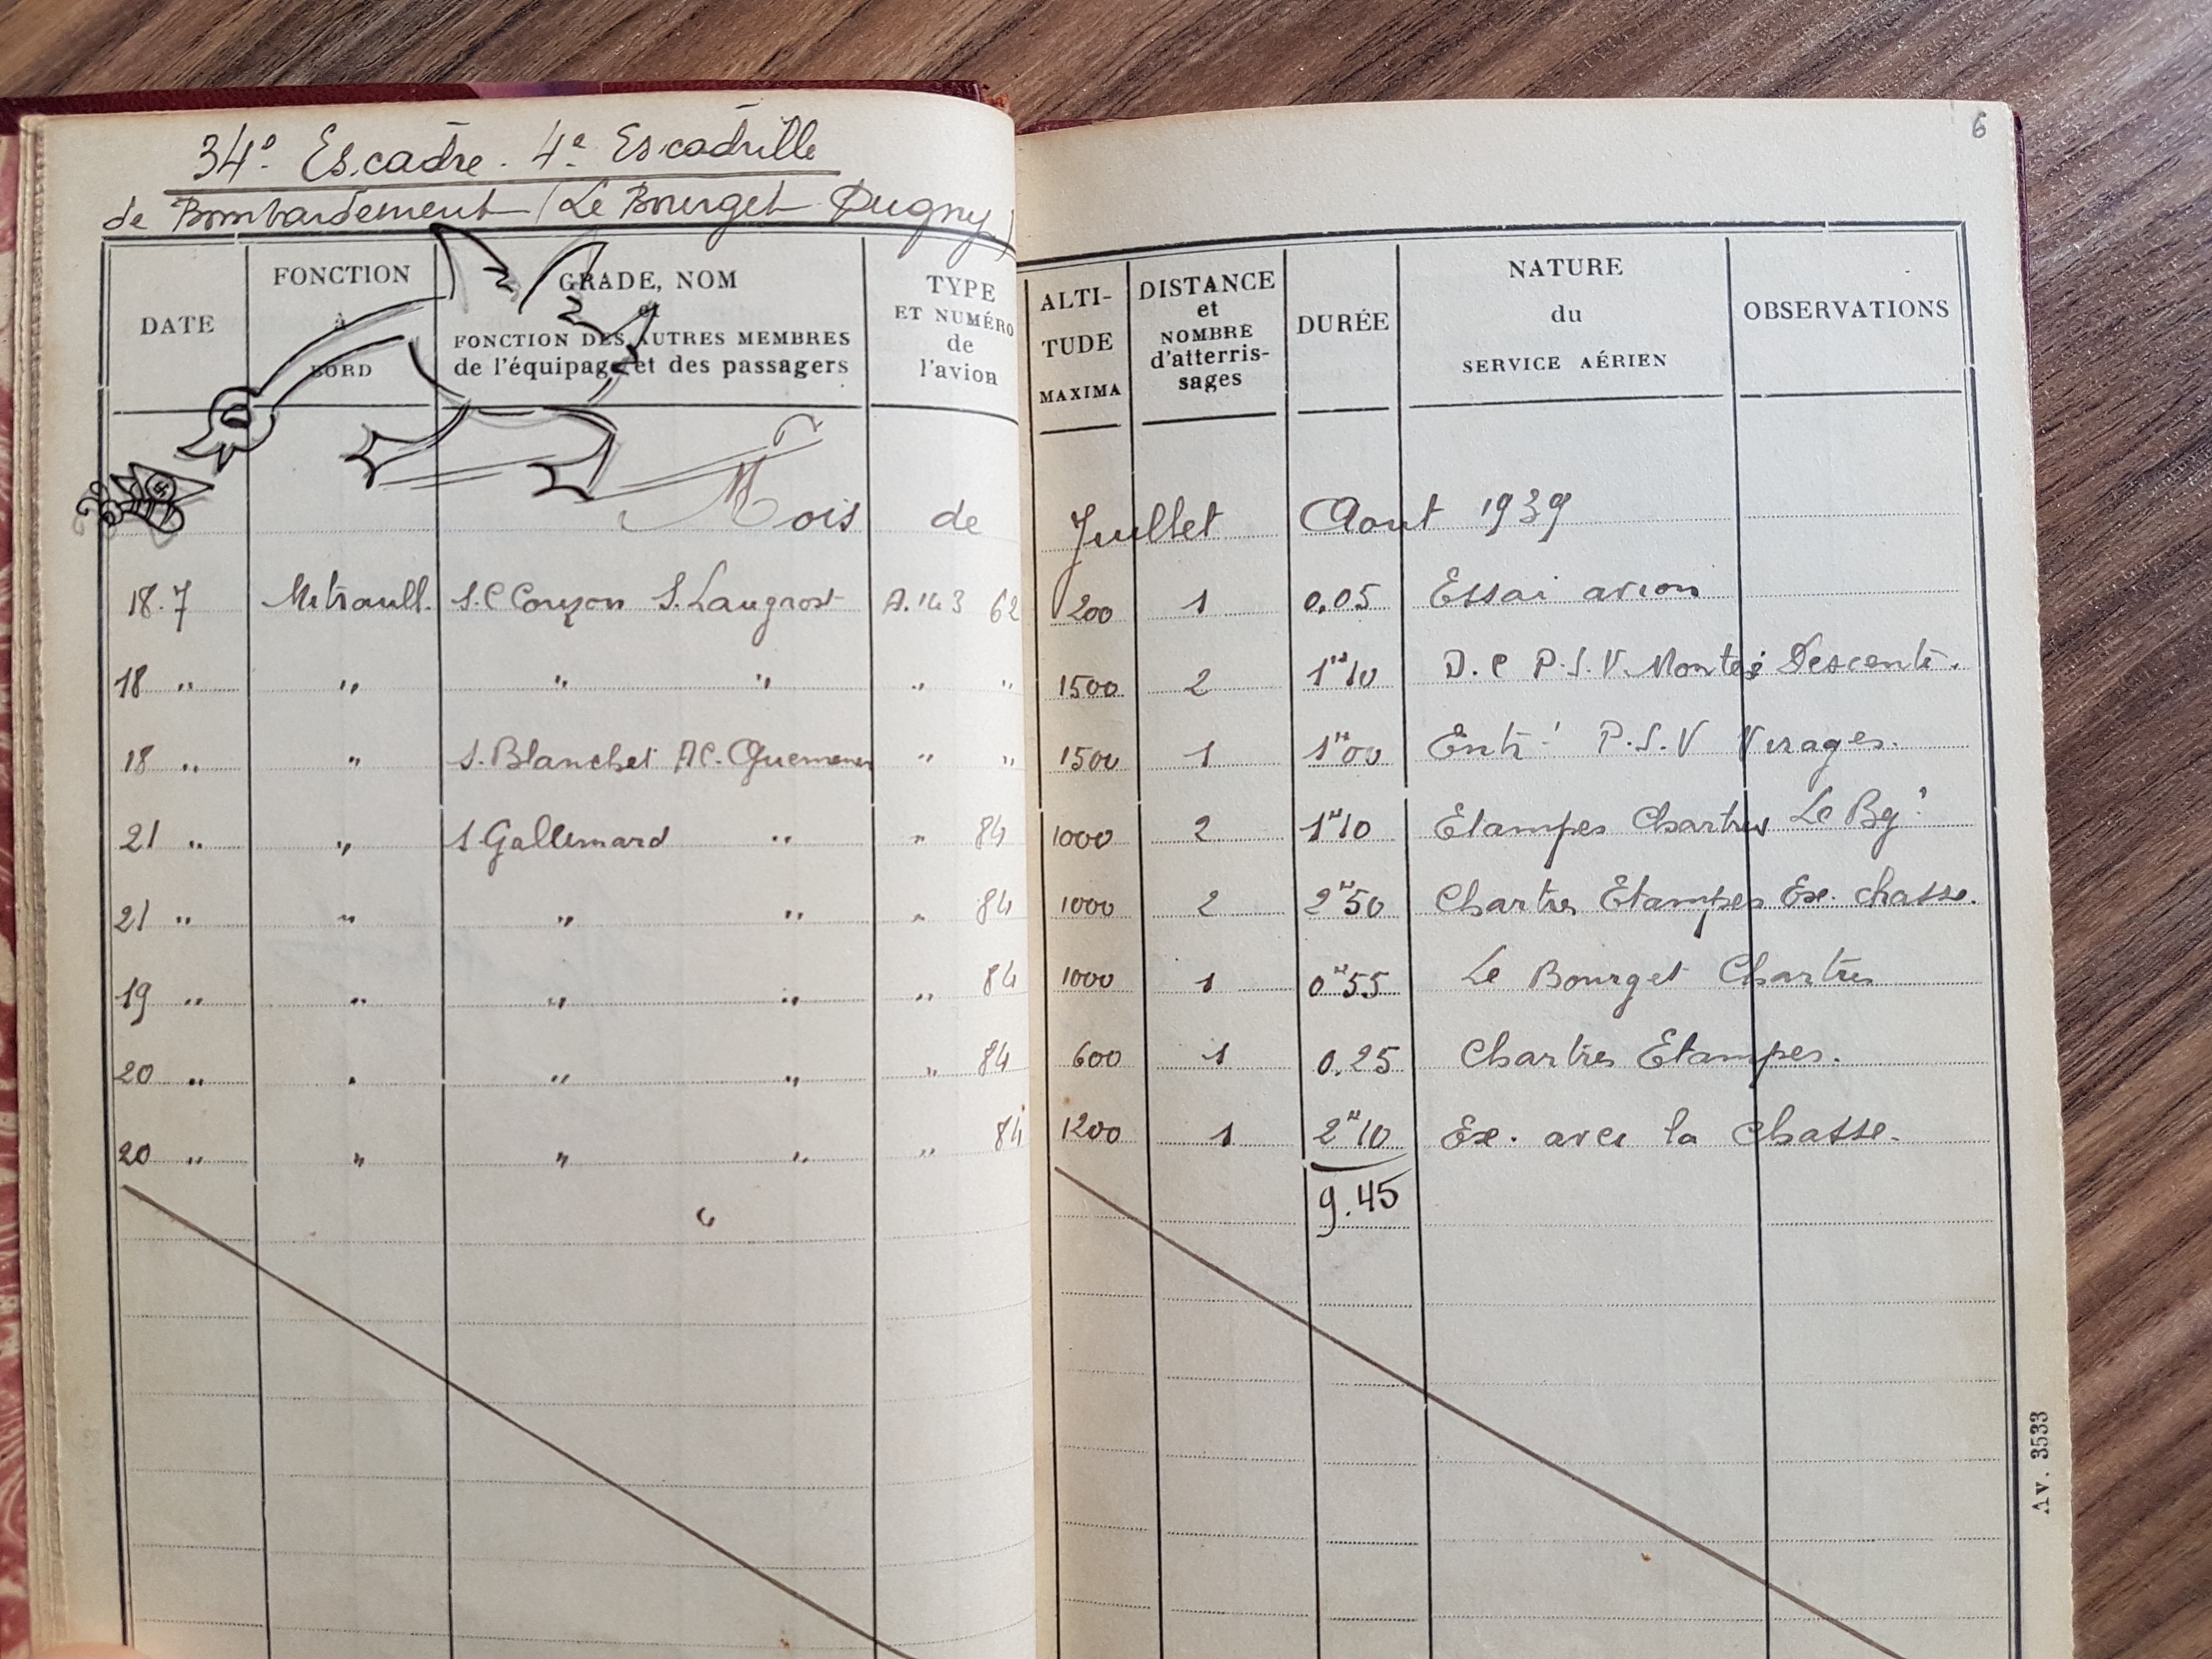 34e Escadre. 4e Escadrille
de Bombardement (Le Bourget Dugny)
6
DATE
FONCTION
à
BORD
GRADE, NOM
et
FONCTION DES AUTRES MEMBRES
de l'équipage et des passagers
TYPE
ET NUMÉRO
de
l'avion
ALTI-
TUDE
MAXIMA
DISTANCE
et
NOMBRE
d'atterris-
sages
DURÉE
NATURE
du
SERVICE AÉRIEN
OBSERVATIONS
Mois de Juillet Aout 1939
18.7 Mitraill. S.C Couzon S. Laugrost A.143 62 200 1 0.05 Essai avion
18 " " " " " " 1500 2 1H10 D.C P.S.V Montée Descente.
18 " " S. Blanchet AC. Quemener " " 1500 1 1H00 Entr! P.S.V Virages.
21 " " S. Gallemard " " 84 1000 2 1H10 Etampes Chartres Le Bgt
21 " " " " " 84 1000 2 2H50 Chartres Etampes Ex. chasse.
19 " " " " " 84 1000 1 0H55 Le Bourget Chartres
20 " " " " " 84 600 1 0.25 Chartres Etampes.
20 " " " " " 84 1200 1 2H10 Ex. avec la chasse.
9.45
Av. 3533